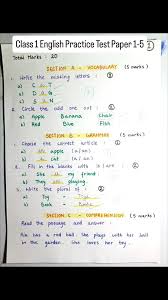 Class 1 English Practice Test Paper 1-5 ①
Total Marks : 20
SECTION A - VOCABULARY (5 marks)
1. Write the missing letters :
a) C A T
b) D O G
c) S U N
2. Circle the odd one out :
a) Apple Banana Chair
b) Red Blue Fish
SECTION B - GRAMMAR (5 marks)
Choose the correct article :
apple (a / an)
ball (a / an)
4. Fill in the blanks with is / am / are
a) She my friend.
b) They playing
5. Write the plural of :
a) Boy Boys
b) Book Books
SECTION C - COMPREHENSION (5 marks)
Read the passage and answer :
Ria has a red ball. She plays with her ball
in the garden. She loves her toy.